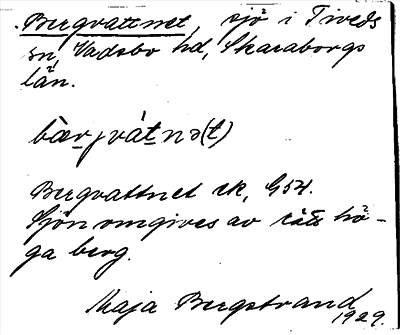 Bergvattnet, sjö i Tiveds
sn, Vadsbo hd, Skaraborgs
län.
bàrjvát̠nə(t)
Bergvattnet ek, G54.
Sjön omgives av rätt hö-
ga berg.
Maja Bergstrand
1929.